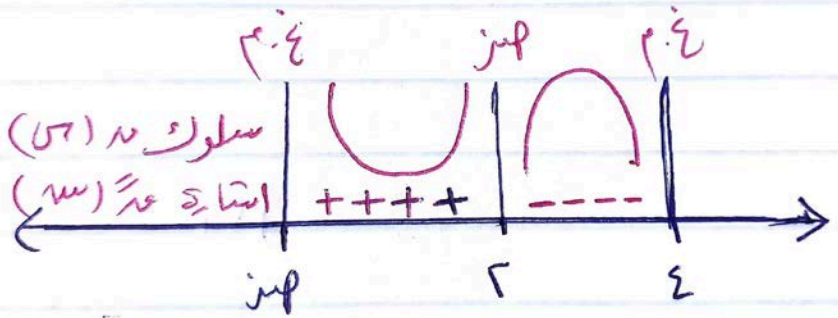 غ.م صفر غ.م
سلوك ق (س)
اشارة قً (س) + + + + - - - -
صفر ٢ ٤